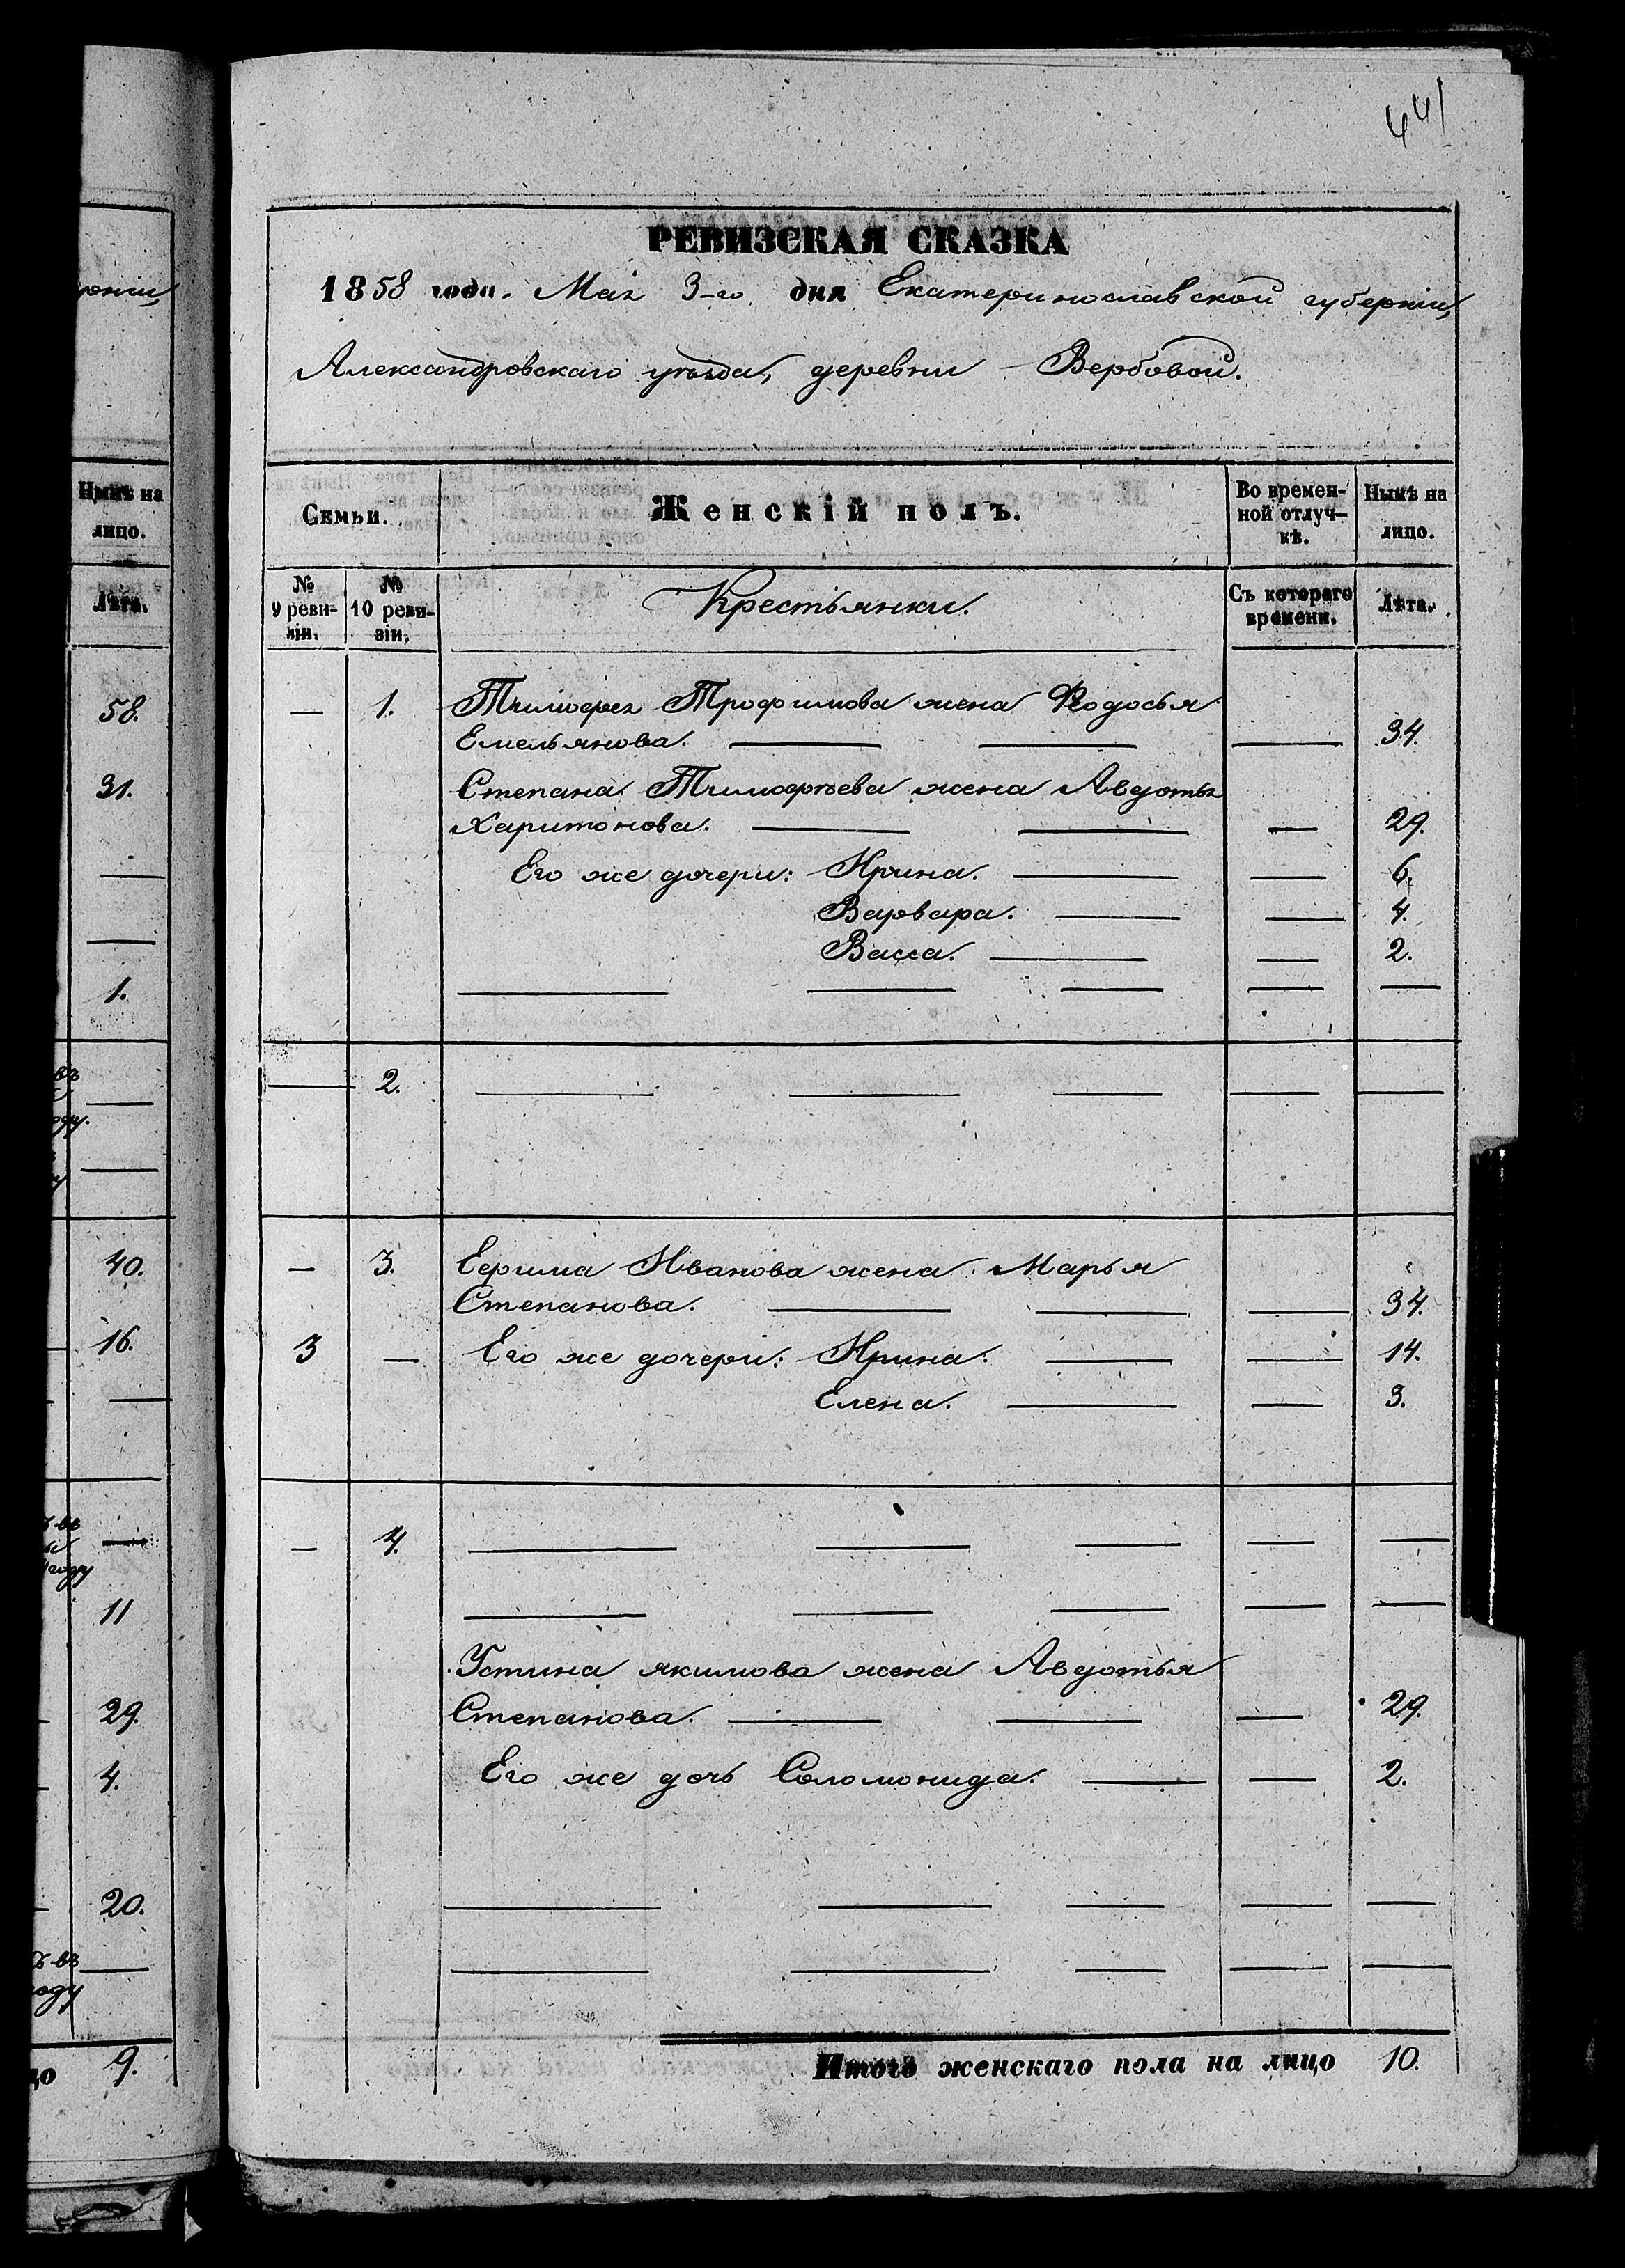 441
РЕВИЗСКАЯ СКАЗКА
1858 года. Мая 3-го дня Екатеринославской губерніи,
Александровскаго уѣзда, деревни Вербовой.
Семьи.
Женскій полъ.
Во времен-
ной отлуч-
кѣ.
Нынѣ на
лицо.
№
9 реви-
зіи.
№
10 реви-
зіи.
Крестьянки.
Съ котораго
времени.
Лѣта.
— 1. Тимофея Трофимова жена Феодосья
Емельянова. — — — 34.
Степана Тимофѣева жена Авдотья
Харитонова. — — — 29.
Его же дочери: Ирина. — — 6.
Варвара. — — 4.
Васса. — — 2.
— — — — —
— 2. — — — — —
— 3. Ефима Иванова жена Марья
Степанова. — — — 34.
3 — Его же дочери: Ирина. — — 14.
Елена. — — 3.
— 4. — — — — —
— — — — —
Устина Якимова жена Авдотья
Степанова. — — — 29.
Его же дочь Соломонида. — — 2.
— — — — —
— — — — —
Итого женскаго пола на лицо 10.
Нынѣ на
лицо.
Лѣта.
58.
31.
—
—
1.
—
—
40.
16.
—
—
году
11
29.
4.
20.
—
9.